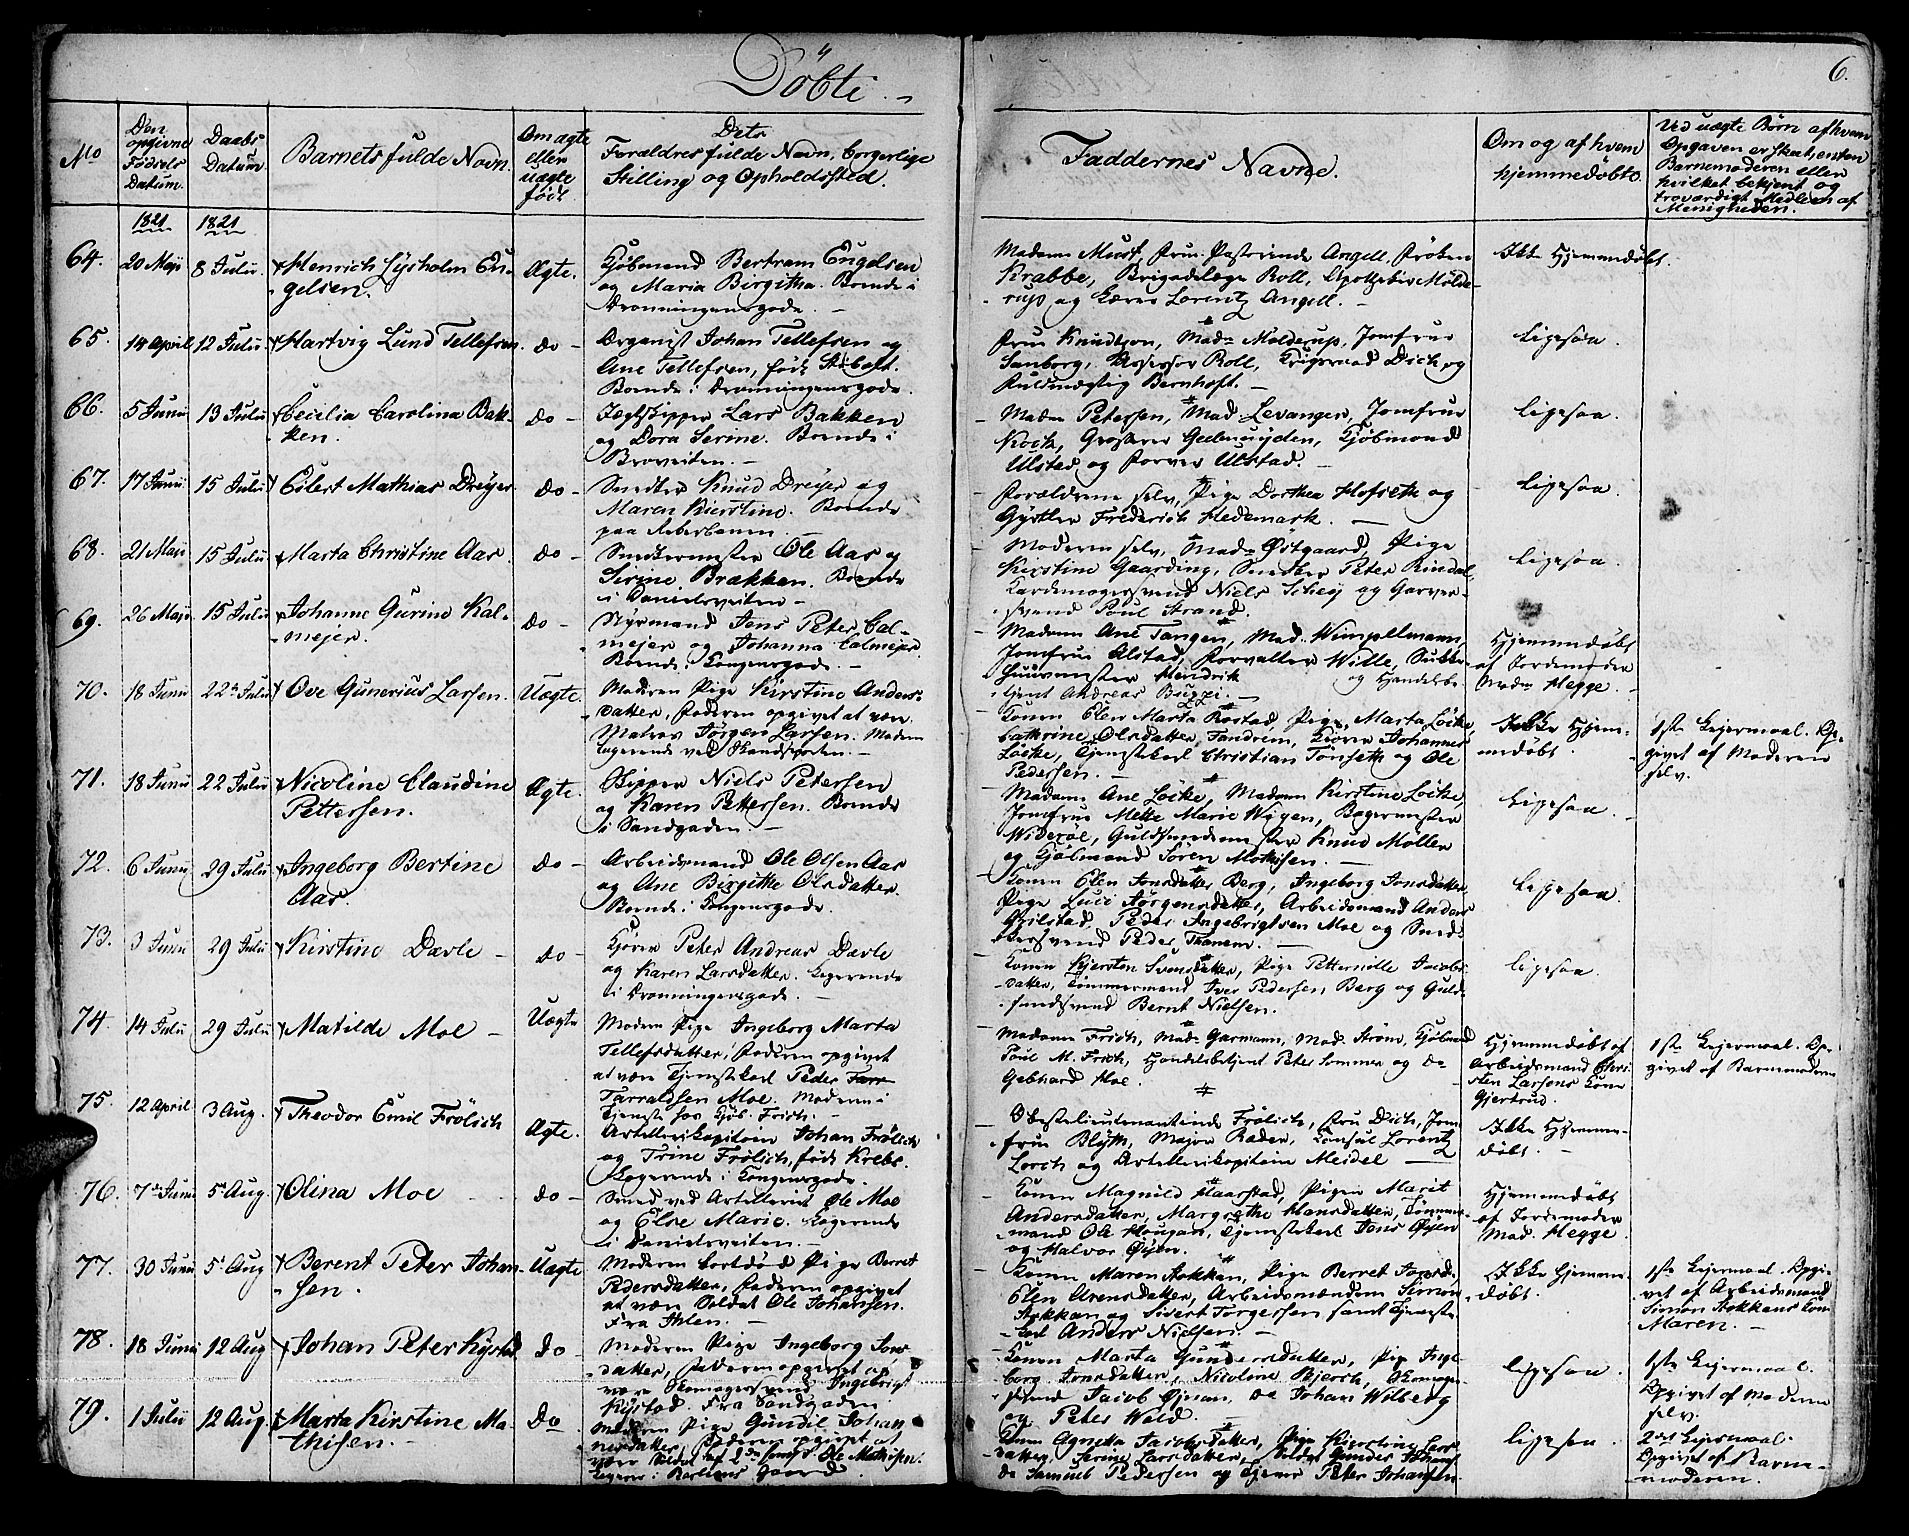 Döbte.
6.
No
Den opgivne Fødsels Datum.
Daabs Datum.
Barnets fulde Navn.
Om ægte eller uægte født.
Dets Forældres fulde Navn, borgerlige Stilling og Opholdssted.
Faddernes Navne.
Om og af hvem hjemmedøbte.
Ved uægte Børn af hvem Opgaven er skeet, enten Barnemoderen eller hvilket bekjent og troværdigt Medlem af Menigheden.
1821 1821
64. 20 Maji 8 Julii Henrich Lysholm En-
gelsen.
Ægte.
Kjøbmand Bertram Engelsen
og Maria Birgitha. Boende i
Dronningensgade.
Krabbe, Brigadelæge Roll, Apotheker Mölde-
rup og Lorentz Angell.
Ikke Hjemmedøbt.
65. 14 April 12 Julii Hartvig Lund Tellefsen.
do
Organist Johan Tellefsen og
Ane Tellefsen, født Stibolt.
Boende i Dronningensgade.
Fru Knudtzon, Madm Molderup, Jomfrue
Sanborg, Assessor Roll, Krigsraad Dich og
Fuldmægtig Bernhoft.
Ligesaa.
66. 5 Junii 13 Julii Cecilia Carolina Bak-
ken.
do
Jegtskipper Lars Bakken
og Dora Serine. Boende i
Broveiten.
Madm Petersen, Mad. Levanger, Jomfrue
Koch, Grosserer Gelmuyden, Kjöbmand
Ulstad og Farver Ulstad.
Ligesaa.
67. 17 Junii 15 Julii Eilert Mathias Dreyer
do
Snedker Knud Dreyer og
Maren Kirstine. Boende
paa Reberbanen.
Forældrene selv, Pige Dorthea Hofseth og
Gjørtler Frederich Hedemark.
Ligesaa.
68. 21 Maji 15 Julii Marta Christine Aas.
do
Snedkermester Ole Aas og
Serine Brækken. Boende
i Danielsveiten
Moderen selv, Madm Østgaard, Pige
Kirstine Gaarding, Snedker Peter Rindal,
Kardemagersvend Niels Schey og Garver-
svend Poul Strand.
Ligesaa
69. 26 Maji 15 Julii Johanne Gurine Kal-
mejer.
do
Styrmand Jens Peter Cal-
mejer og Johanna Calmejer
Boende i Kongensgade.
Madam Ane Tangen, Mad. Wimpelmann,
Jomfrue Ulstad, Forvalter Wille,
Hendrik og Handelsbe-
tjent Andreas Buggi.
Hjemmedøbt
af Jordemoder
Madm Hegge.
70. 18 Junii 22de Julii Ove Gunerius Larsen.
Uægte.
Moderen Pige Kirstine Anders-
datter, Faderen opgivet at være
Matros Jörgen Larsen. Moderen
logerende ved Skandseporten.
Konen Elen Marta Rostad, Pige Marta Löcke,
Cathrine Olsdatter Tandrem, Kjører Johannes
Löcke, Tjenestekarl Christian Tonseth og Ole
Pedersen.
Ikke Hjem-
medøbt.
1ste Leiermaal. Op-
givet af Moderen
selv.
71. 18 Junii 22 Julii Nicoline Claudine
Pettersen.
Ægte.
Skipper Niels Petersen
og Karen Pettersen. Boende
i Sandgaden.
Madam Ane Löcke, Madam Kirstine Löcke,
Jomfrue Mette Marie Wigen, Bagermester
Wideröe, Guldsmedmester Knud Möller
og Kjøbmand Sören Mathisen.
Ligesaa.
72. 6 Junii 29 Julii Ingeborg Bertine
Aas.
do
Arbeidsmand Ole Olsen Aas
og Ane Birgitte Olsdatter.
Boende i Kongensgade.
Konen Elen Jonsdatter Berg, Ingeborg Jonsdatter,
Pige Luci Jörgensdatter, Arbeidsmand Anders
Opilstad, Peder Ingebrigtsen Moe og Sned-
kersvend Peder Thanem.
Ligesaa.
73. 3 Junii 29 Julii Kirstine Davle
do
Kjører Peter Andreas Davle
og Karen Larsdatter. Logerende
i Dronningensgade.
Konen Kjersten Svensdatter, Pige Petternille Jacobs-
datter, Tömmermand Iver Pedersen Berg og Guld-
smedsvend Bernt Nielsen.
Ligesaa.
74. 14 Julii 29 Julii Matilde Moe
Uægte
Moderen Pige Ingeborg Marta
Tellefsdatter, Faderen opgivet
at være Tjenestekarl Peder
Tarraldsen Moe. Moderen i
Tjeneste hos Kjöb. Frich.
Madam Frich, Madm Garmann, Mad. Ström, Kjøbmand
Poul M. Frich, Handelsbetjent Peter Sommer og do
Gebhard Moe.
Hjemmedøbt af
Arbeidsmand Chri-
sten Larsens Kone
Gjertrud.
1ste Leiermaal. Op-
givet af Barnemoderen
75. 12 April 3 Aug. Theodor Emil Frölich
Ægte.
Artellerikapitein Johan Frölich
og Trine Frölich, født Krebs.
Logerende i Kongensgade.
Obestelieutenantinde Frölich, Fru Dich, Jom-
frue Blyth, Major Rader, Konsul Lorentz
Lorch og Artellerikapitein Meidel
Ikke Hjemme-
døbt.
76. 7de Junii 5te Aug. Olina Moe
do
Smed ved Artelleriet Ole Moe
og Else Marie. Logerende
i Danielsveiten.
Konen Magnild Haarstad, Pigen Marit
Andersdatter, Margrethe Hansdatter, Tömmer-
mand Ole Hougan, Tjenestekarl Jens Öyen
og Halvor Öyen.
Hjemmedøbt
af Jordemoder
Mad. Hegge.
77. 30 Junii 5te Aug Berent Peter Johan-
sen.
Uægte
Moderen bortdöd Pige Berret
Pedersdatter, Faderen opgivet
at være Soldat Ole Johansen.
Fra Ihlen.
Konen Maren Stokkan, Pige Berret Jonsd.,
Elen Arensdatter, Arbeidsmændene Simon
Stokkan og Sivert Torgersen samt Tjeneste-
karl Anders Nielsen.
Ikke Hjemme-
døbt.
1ste Leiermaal. Opgi-
vet af Arbeidsmand
Simon Stokkans Kone
Maren.
78. 18 Junii 12 Aug Johan Peter Kystad
do
Moderen Pige Ingeborg Jons-
datter, Faderen opgivet at
være Skomagersvend Ingebrigt
Kystad. Fra Sandgaden.
Konen Marta Gundersdatter, Pige Inge-
borg Jonsdatter, Nicoline Skjerch, Skomager-
svend Jacob Öiman, do Johan Wilberg
og Peter Wold.
Ligesaa
1ste Leiermaal.
Opgivet af Moderen
selv.
79. 1 Julii 12 Aug. Marta Kirstine Ma-
thisen.
Do
Moderen Pige Gunild Johan-
nesdatter, Faderen opgivet at
være Soldat Ole Mathisen.
Konen Agneta Jacobsdatter, Pige Kirstine Lars-
datter, Serine Larsdatter, Soldat Gunder Johans.
do Samuel Pedersen og Tjener Peter Johansen.
Ligesaa
2det Leiermaal.
Opgivet af Barne-
moderen.